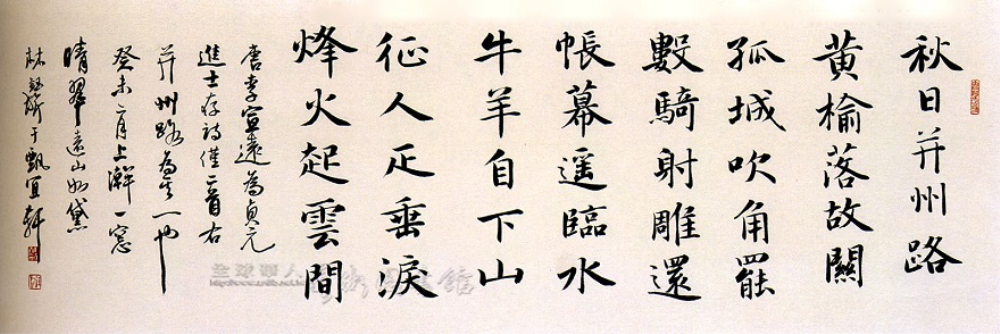 秋日并州路
黃榆落故關
孤城吹角罷
數騎射雕還
帳幕遥臨水
牛羊自下山
征人正垂淚
烽火起雲間
唐李宣遠為貞元
進士存詩僅二首右
并州路為其一也
癸未二月上澣一窓
晴翠遠山如黛
林
于飄宜軒
全球華人
藝術圖書館